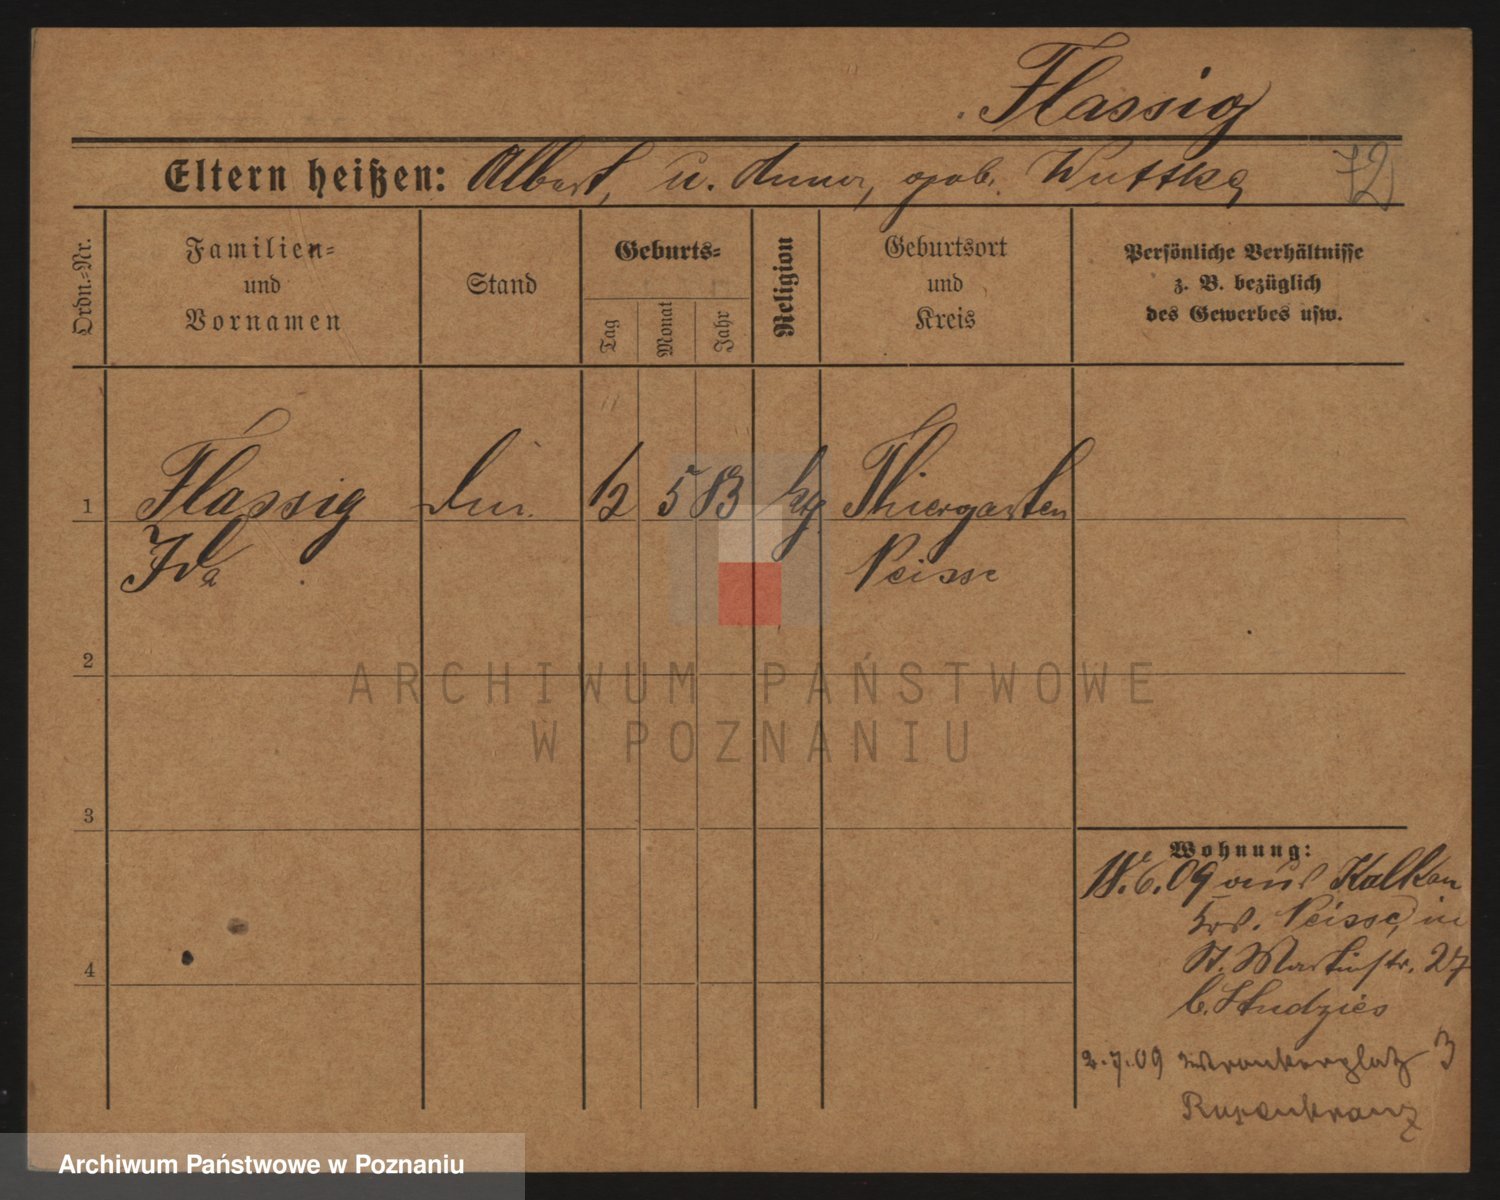 Flassig
Eltern heißen: Albert, u. Anna, geb. Wuttke
72
Ordn.-Nr.
Familien-
und
Vornamen
Stand
Geburts-
Tag
Monat
Jahr
Religion
Geburtsort
und
Kreis
Persönliche Verhältnisse
z. B. bezüglich
des Gewerbes usw.
1 Flassig 12 5 83 ktg. Thiergarten
Ida Neisse
2
3
4
Wohnung:
18.6.09 aus Kalkau
Krs. Neisse, in
St. Martinstr. 27
b. Studzies
2.7.09 Wronkerplatz 3
ARCHIWUM PAŃSTWOWE
W POZNANIU
Archiwum Państwowe w Poznaniu